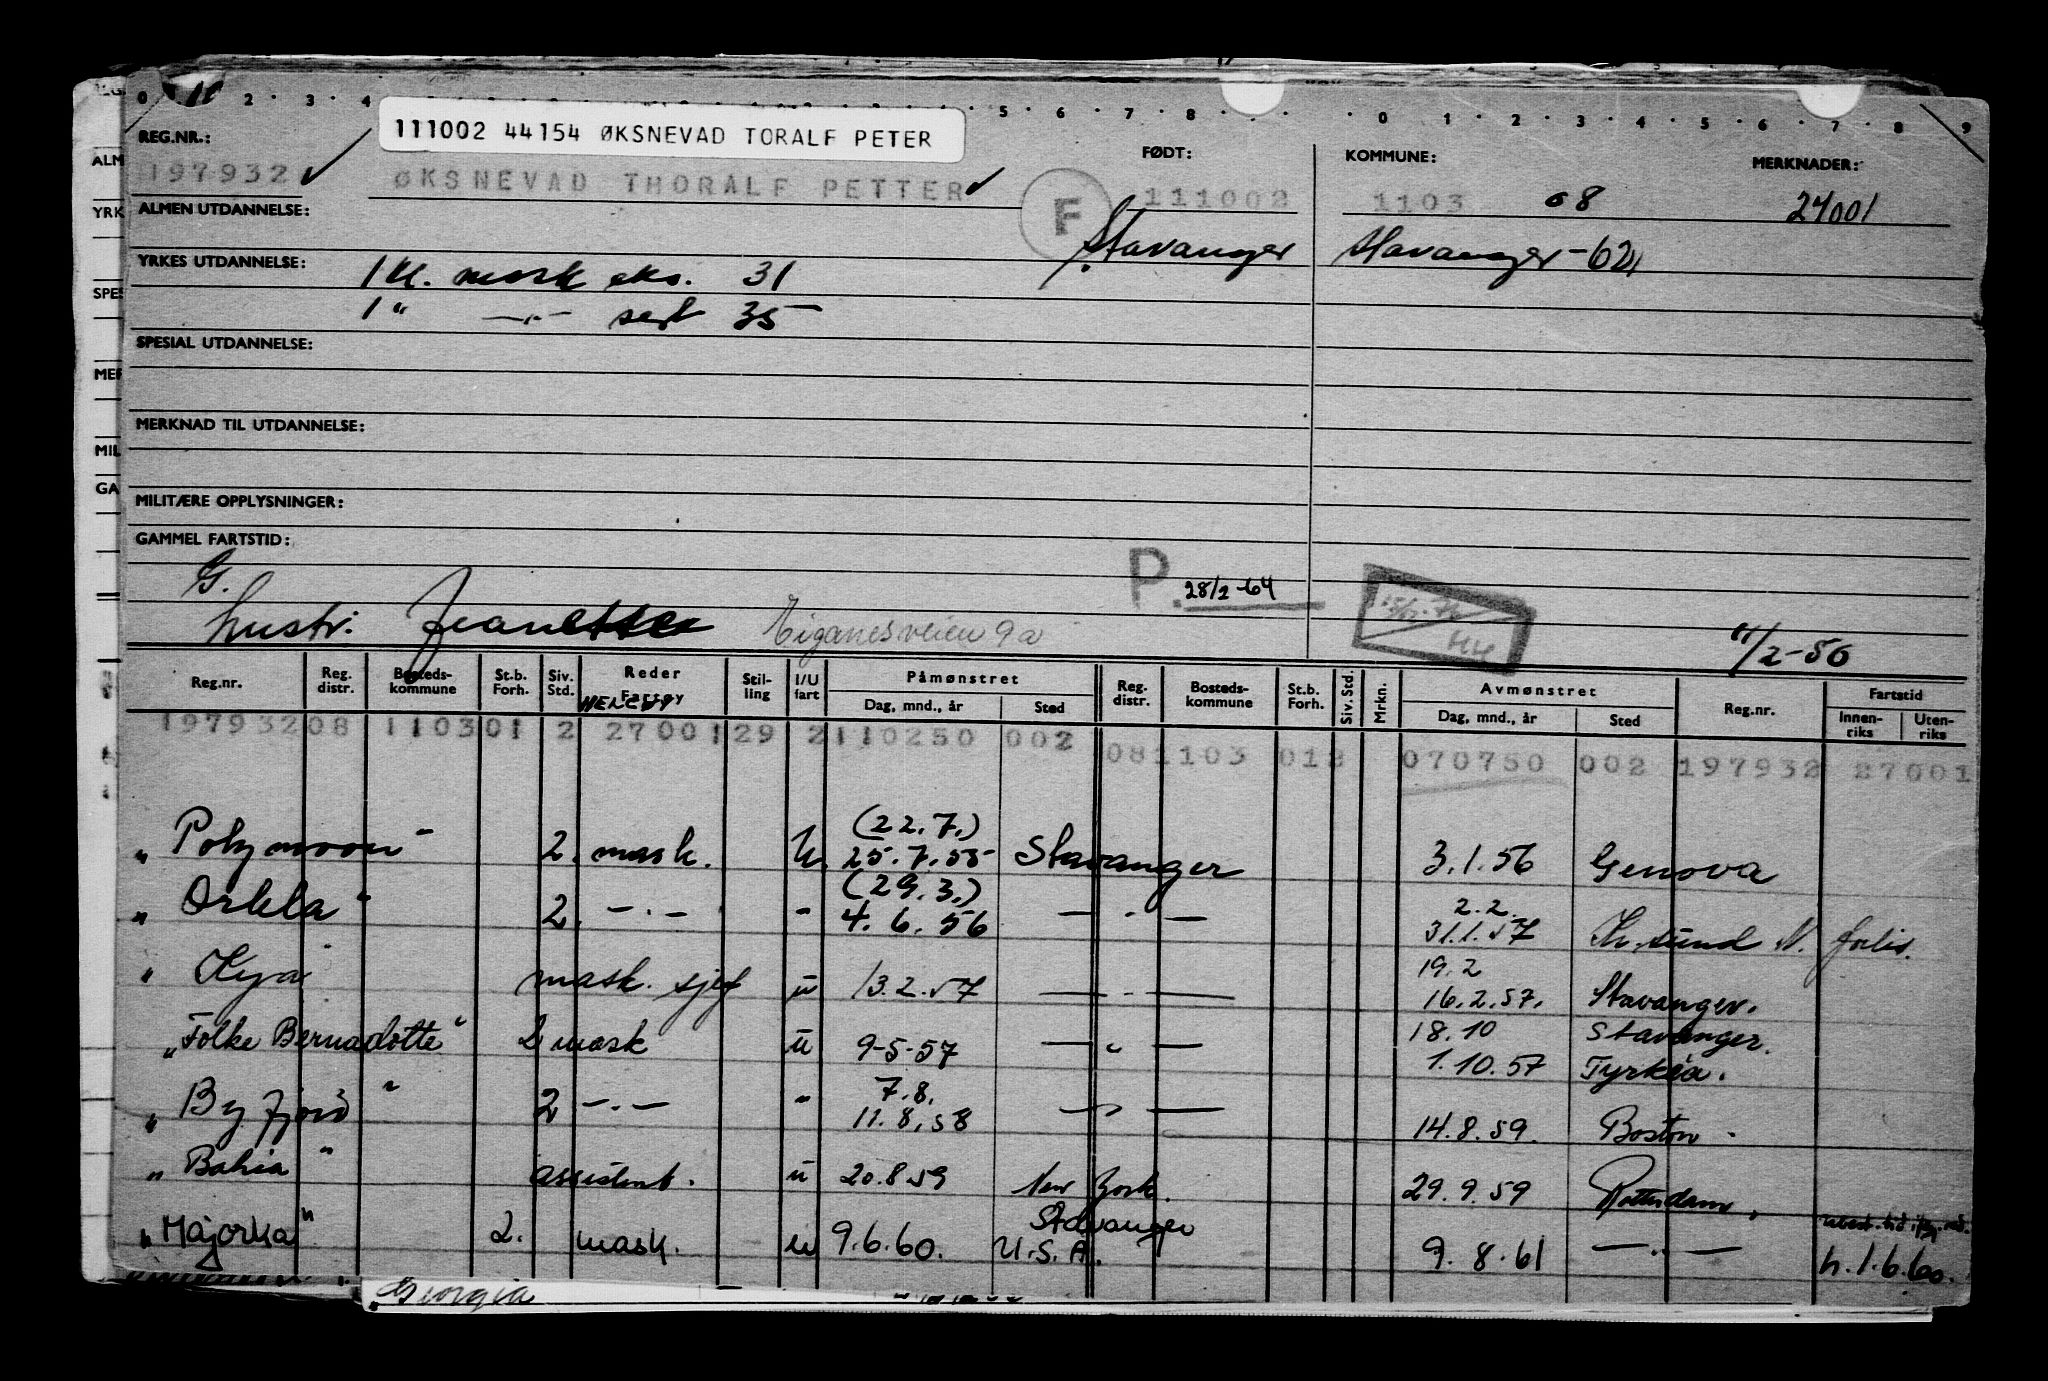 111002 44154 ØKSNEVAD TORALF PETER
REG.NR.: FØDT: KOMMUNE: MERKNADER:
197932 ØKSNEVAD THORALF PETTER F 111002 1103 08 24001
ALMEN UTDANNELSE: Stavanger Stavanger-62
YRKES UTDANNELSE: 1 kl. mask eks. 31
1 " —"— sert 35
SPESIAL UTDANNELSE:
MERKNAD TIL UTDANNELSE:
MILITÆRE OPPLYSNINGER:
GAMMEL FARTSTID:
G. P. 28/2-64
hustr. Jeanette Eiganesveien 9a 11/2-50
Reg.nr. Reg. distr. Bosteds-kommune St.b. Forh. Siv. Std. Reder Fartøy Stil-ling I/U fart Påmønstret Dag, mnd., år Sted Reg. distr. Bosteds-kommune St.b. Forh. Siv. Std. Mrkn. Avmønstret Dag, mnd., år Sted Reg.nr. Fartstid Innen-riks Uten-riks
197932 08 1103 01 2 27001 29 2 110250 002 08 1103 012 070750 002 197932 27001
(22.7.)
"Polymoon" 2. mask. U. 25.7.55 Stavanger 3.1.56 Genova
(29.3.) 2.2.
"Orkla" 2. —"— " 4.6.56 —"— 31.1.57 Kr.sund N. forlis.
19.2
"Kya" mask. sjef u 13.2.57 —"— 16.2.57. Stavanger.
18.10 Stavanger.
"Folke Bernadotte" 2 mask u 9-5-57 —"— 1.10.57 Tyrkia.
7.8.
"Byfjord" 2 —"— " 11.8.58 —"— 14.8.59. Boston.
"Bahia" assistent. u 20.8.59 New York. 29.9.59 Rotterdam.
Stavanger
"Majorka" 2. mask. u 9.6.60. U.S.A. 9.8.61 —"— h.1.6.60.
Georgia